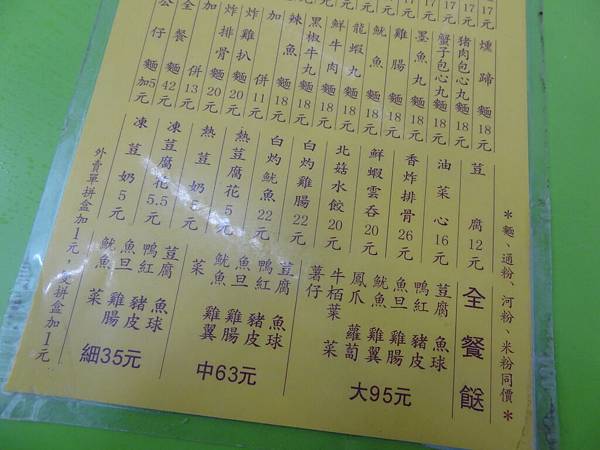 燻蹄麵18元
豬肉包心丸麵18元
蟹子包心丸麵18元
墨魚丸麵18元
雞腸麵18元
魷魚麵18元
龍蝦丸麵18元
鮮牛肉麵18元
黑椒牛丸麵18元
辣魚麵18元
加併11元
炸雞扒麵20元
炸排骨麵20元
加併13元
全餐麵42元
公仔麵加5元
＊麵、通粉、河粉、米粉同價＊
荳腐12元
油菜心16元
香炸排骨26元
鮮蝦雲吞20元
北菇水餃20元
白灼雞腸22元
白灼魷魚22元
熱荳腐花5元
熱荳奶5元
凍荳腐花5.5元
凍荳奶5元
全餐餸
荳腐 魚球
鴨紅 豬皮
魚旦 雞腸
魷魚 雞翼
鳳爪 蘿蔔
牛栢葉 菜
薯仔
大95元
荳腐 魚球
鴨紅 豬皮
魚旦 雞腸
魷魚 雞翼
菜
中63元
荳腐 魚球
鴨紅 豬皮
魚旦 雞腸
魷魚 菜
細35元
外賣單拼盒加1元，雙拼盒加1元